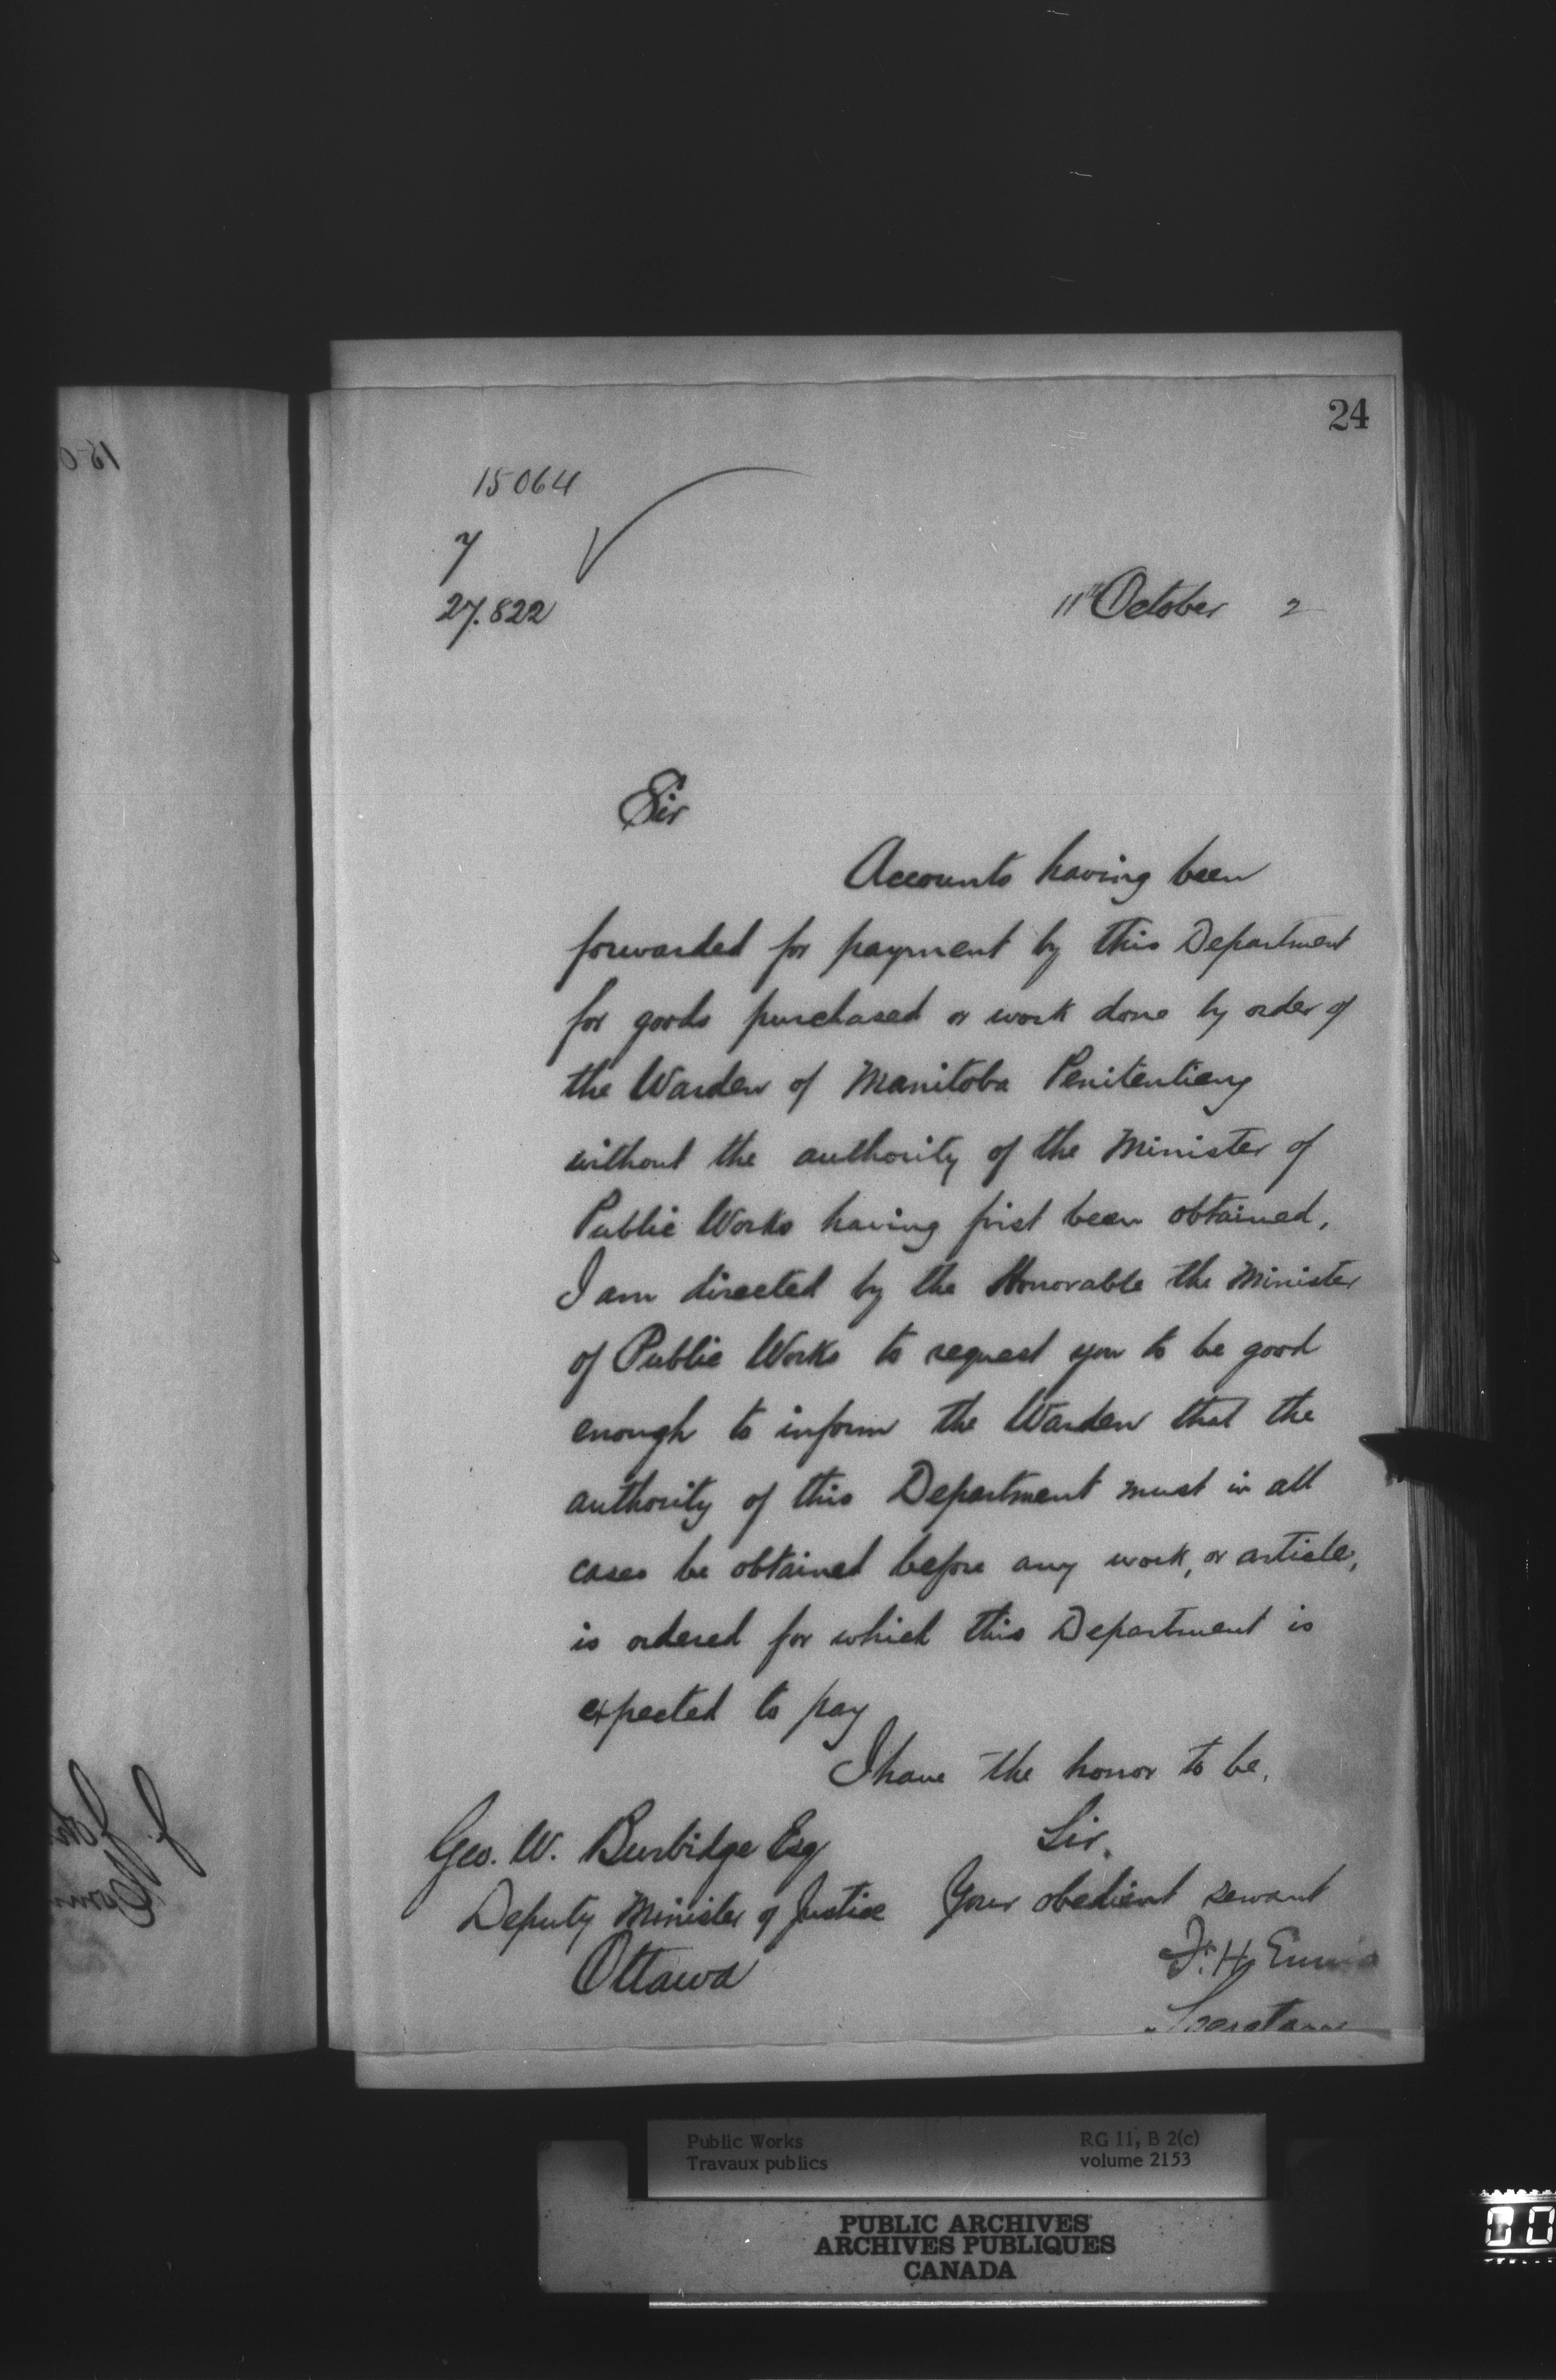 24
15064
7
27.822
11th October 2
Sir
Accounts having been
forwarded for payment by this Department
for goods purchased or work done by order of
the Warden of Manitoba Penitentiary
without the authority of the Minister of
Public Works having first been obtained,
I am directed by the Honorable the Minister
of Public Works to request you to be good
enough to inform the Warden that the
authority of this Department must in all
cases be obtained before any work, or article,
is ordered for which this Department is
expected to pay
I have the honor to be,
Sir,
Geo. W. Burbidge Esq
Your obedient servant
Deputy Minister of Justice
Ottawa
F. H. Ennis
Secretary
Public Works
Travaux publics
RG 11, B 2(c)
volume 2153
PUBLIC ARCHIVES
ARCHIVES PUBLIQUES
CANADA